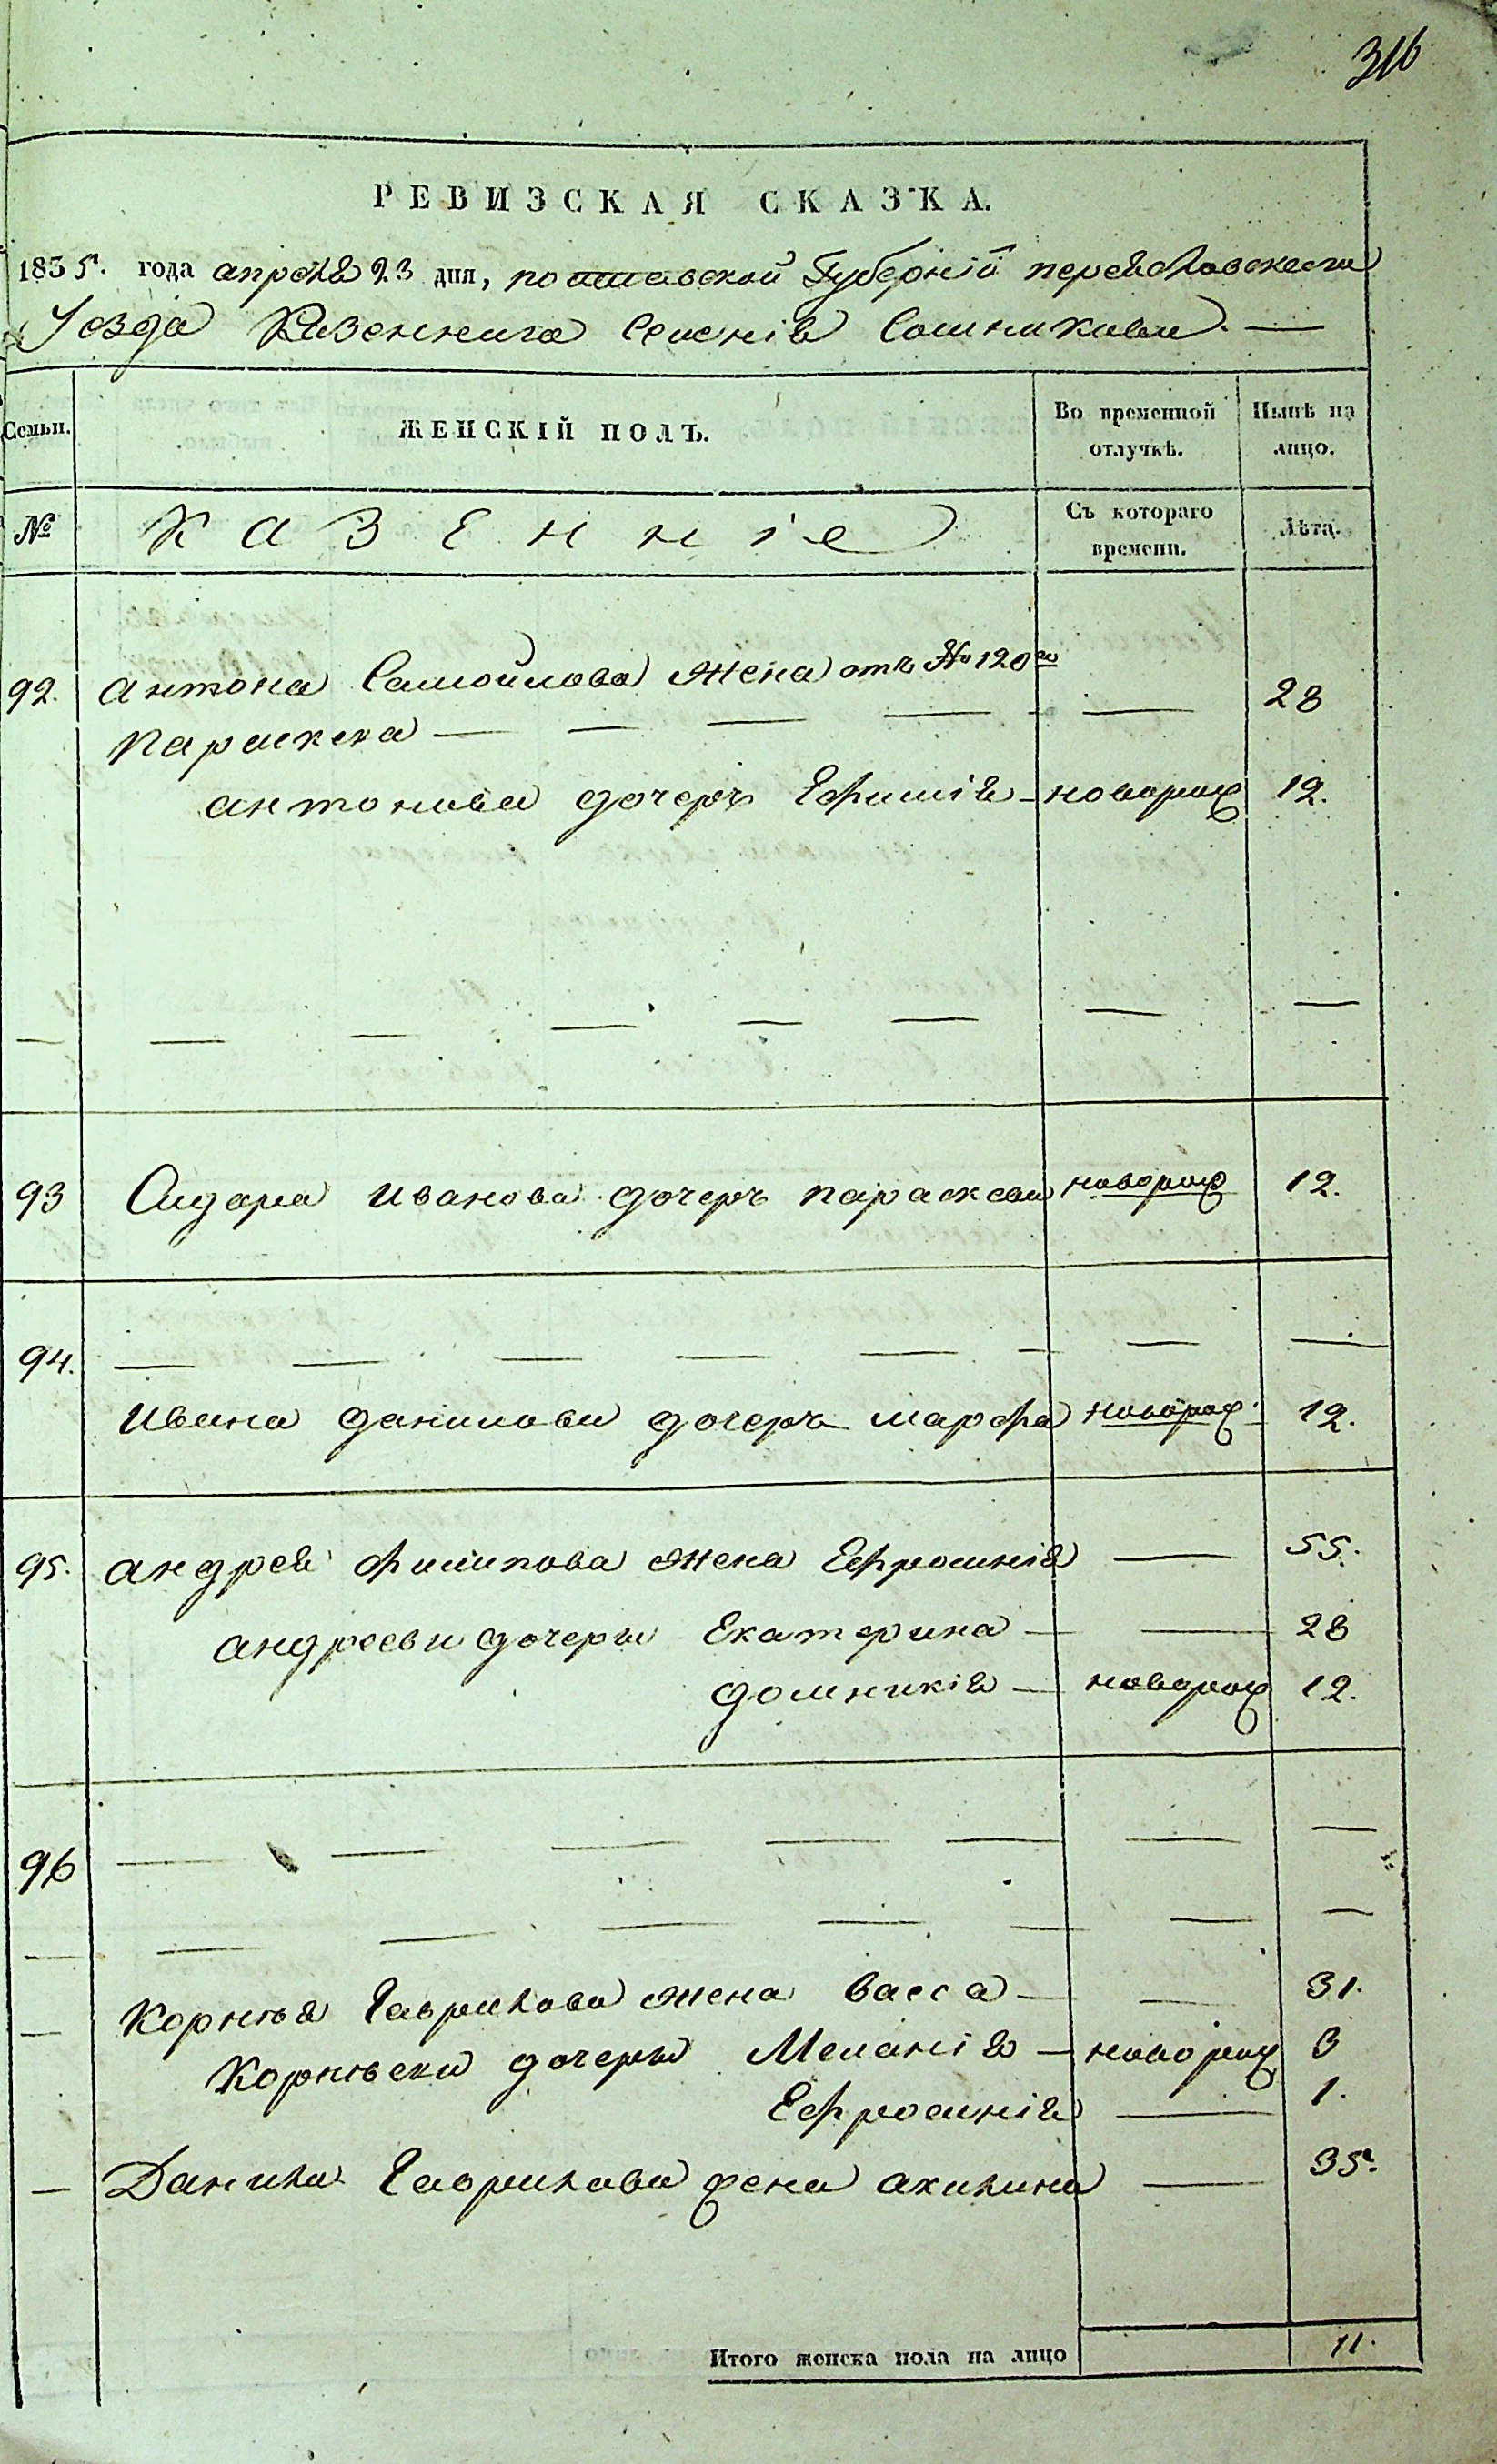 316
РЕВИЗСКАЯ СКАЗКА.
1835. года апреля 23 дня, полтавской Губерніи переяславскаго
Уезда Казеннаго Селенія Сошникова.
Семьи. ЖЕНСКІЙ ПОЛЪ. Во временной отлучкѣ. Нынѣ на лицо.
№ Казенніе Съ котораго времени. Лѣта.
92. антона Самойлова жена отъ №120го
Параскева 28
антонова дочеръ Ефимія новорож 12.
93 Сидора Иванова дочеръ параскева новорож 12.
94.
Ивана данилова дочеръ марфа новорож. 12.
95. андрея филипова жена Ефросинія 55.
андреевы дочеры Екатерина 28
домникія новорож 12.
96
Корнѣя Гаврилова жена васса 31.
Корнѣева дочеры Меланія новорож 3
Ефросинія 1.
Данила Гаврилова жена акилина 35.
Итого женска пола на лицо 11.